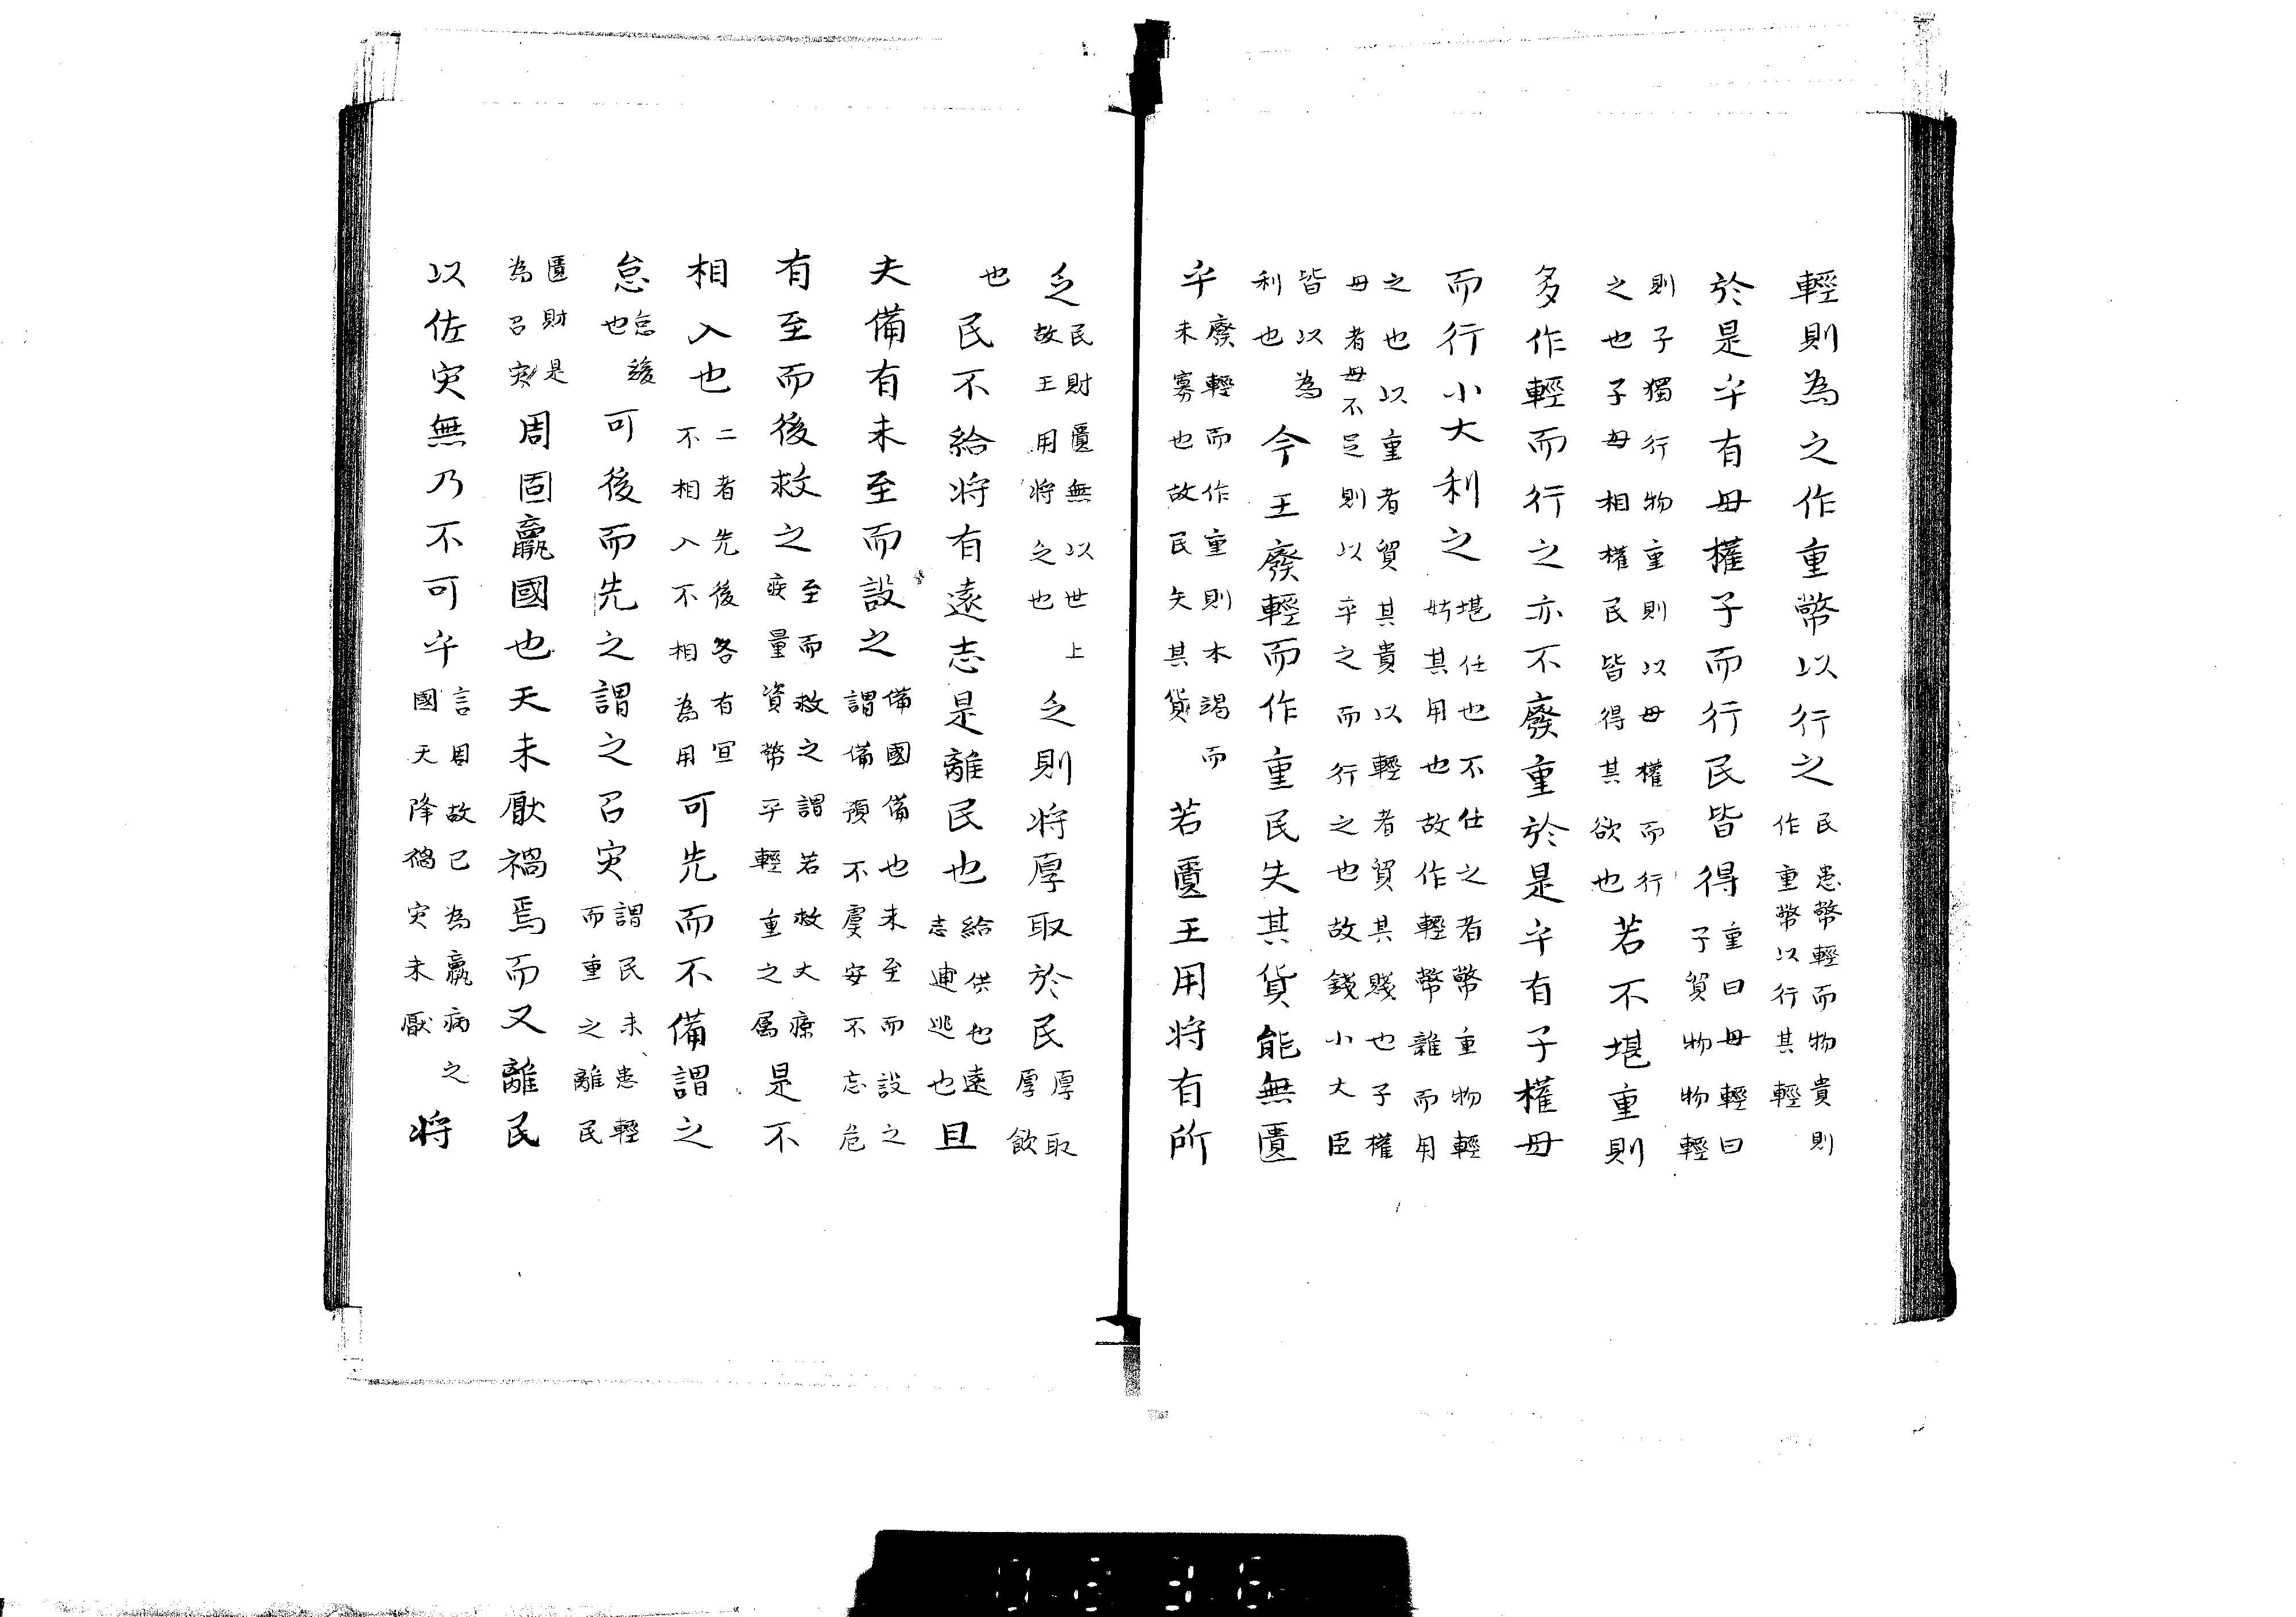 輕則為之作重幣以行之民患幣輕而物貴則作重幣以行其輕
於是乎有母權子而行民皆得重曰母輕曰子貿物物輕
則子獨行物重則以母權而行之也子母相權民皆得其欲也若不堪重則
多作輕而行之亦不廢重於是乎有子權母
而行小大利之堪任也不任之者幣重物輕妨其用也故作輕幣雜而用
之也以重者貿其貴以輕者貿其賤也子權母者母不足則以平之而行之也故錢小大臣
皆以為利也今王廢輕而作重民失其貨能無匱
乎廢輕而作重則本竭而末寡也故民失其貨若匱王用将有所
乏民財匱無以世上故王用将乏也乏則将厚取於民厚取厚斂
也民不給将有遠志是離民也給供也遠志逋逃也且
夫備有未至而設之備國備也未至而設之謂備預不虞安不忘危
有至而後救之至而救之謂若救火療疾量資幣平輕重之属是不
相入也二者先後各有宜不相入不相為用可先而不備謂之
怠怠緩也可後而先之謂之召灾謂民未患輕而重之離民
匱財是為召灾周固羸國也天未厭禍焉而又離民
以佐灾無乃不可乎言周故已為羸病之國天降禍灾未厭将